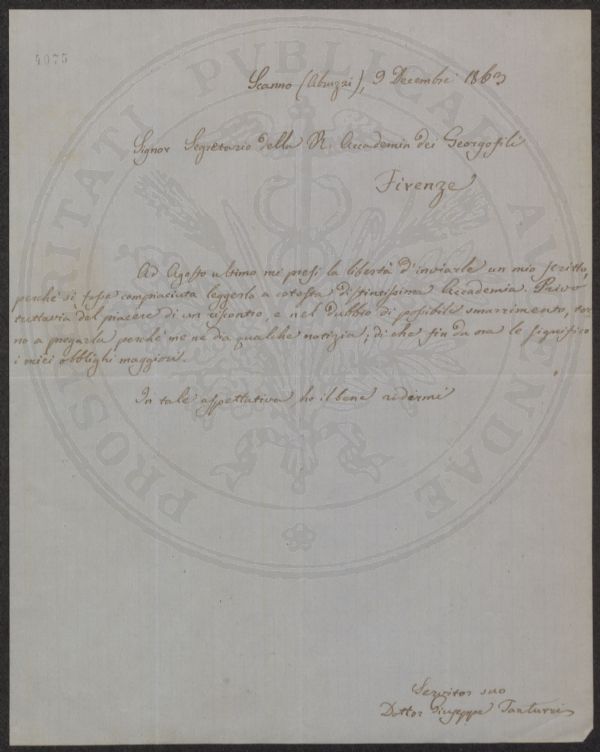 4075
PROSPERITATI PVBLICAE AVGENDAE
Scanno (Abruzzi), 9 Decembre 1863
Signor Segretario della R. Accademia dei Georgofili
Firenze
Ad Agosto ultimo mi presi la libertà d'inviarle un mio scritto,
perché si fosse compiaciuta leggerlo a cotesta distintissima Accademia. Privo
tuttavia del piacere di un riscontro, e nel dubbio di possibile smarrimento, tor
no a pregarla perché me ne dia qualche notizia, di che fin da ora le significo
i miei obblighi maggiori.
In tale aspettativa ho il bene ridirmi
Servitor suo
Dottor Giuseppe Tanturri